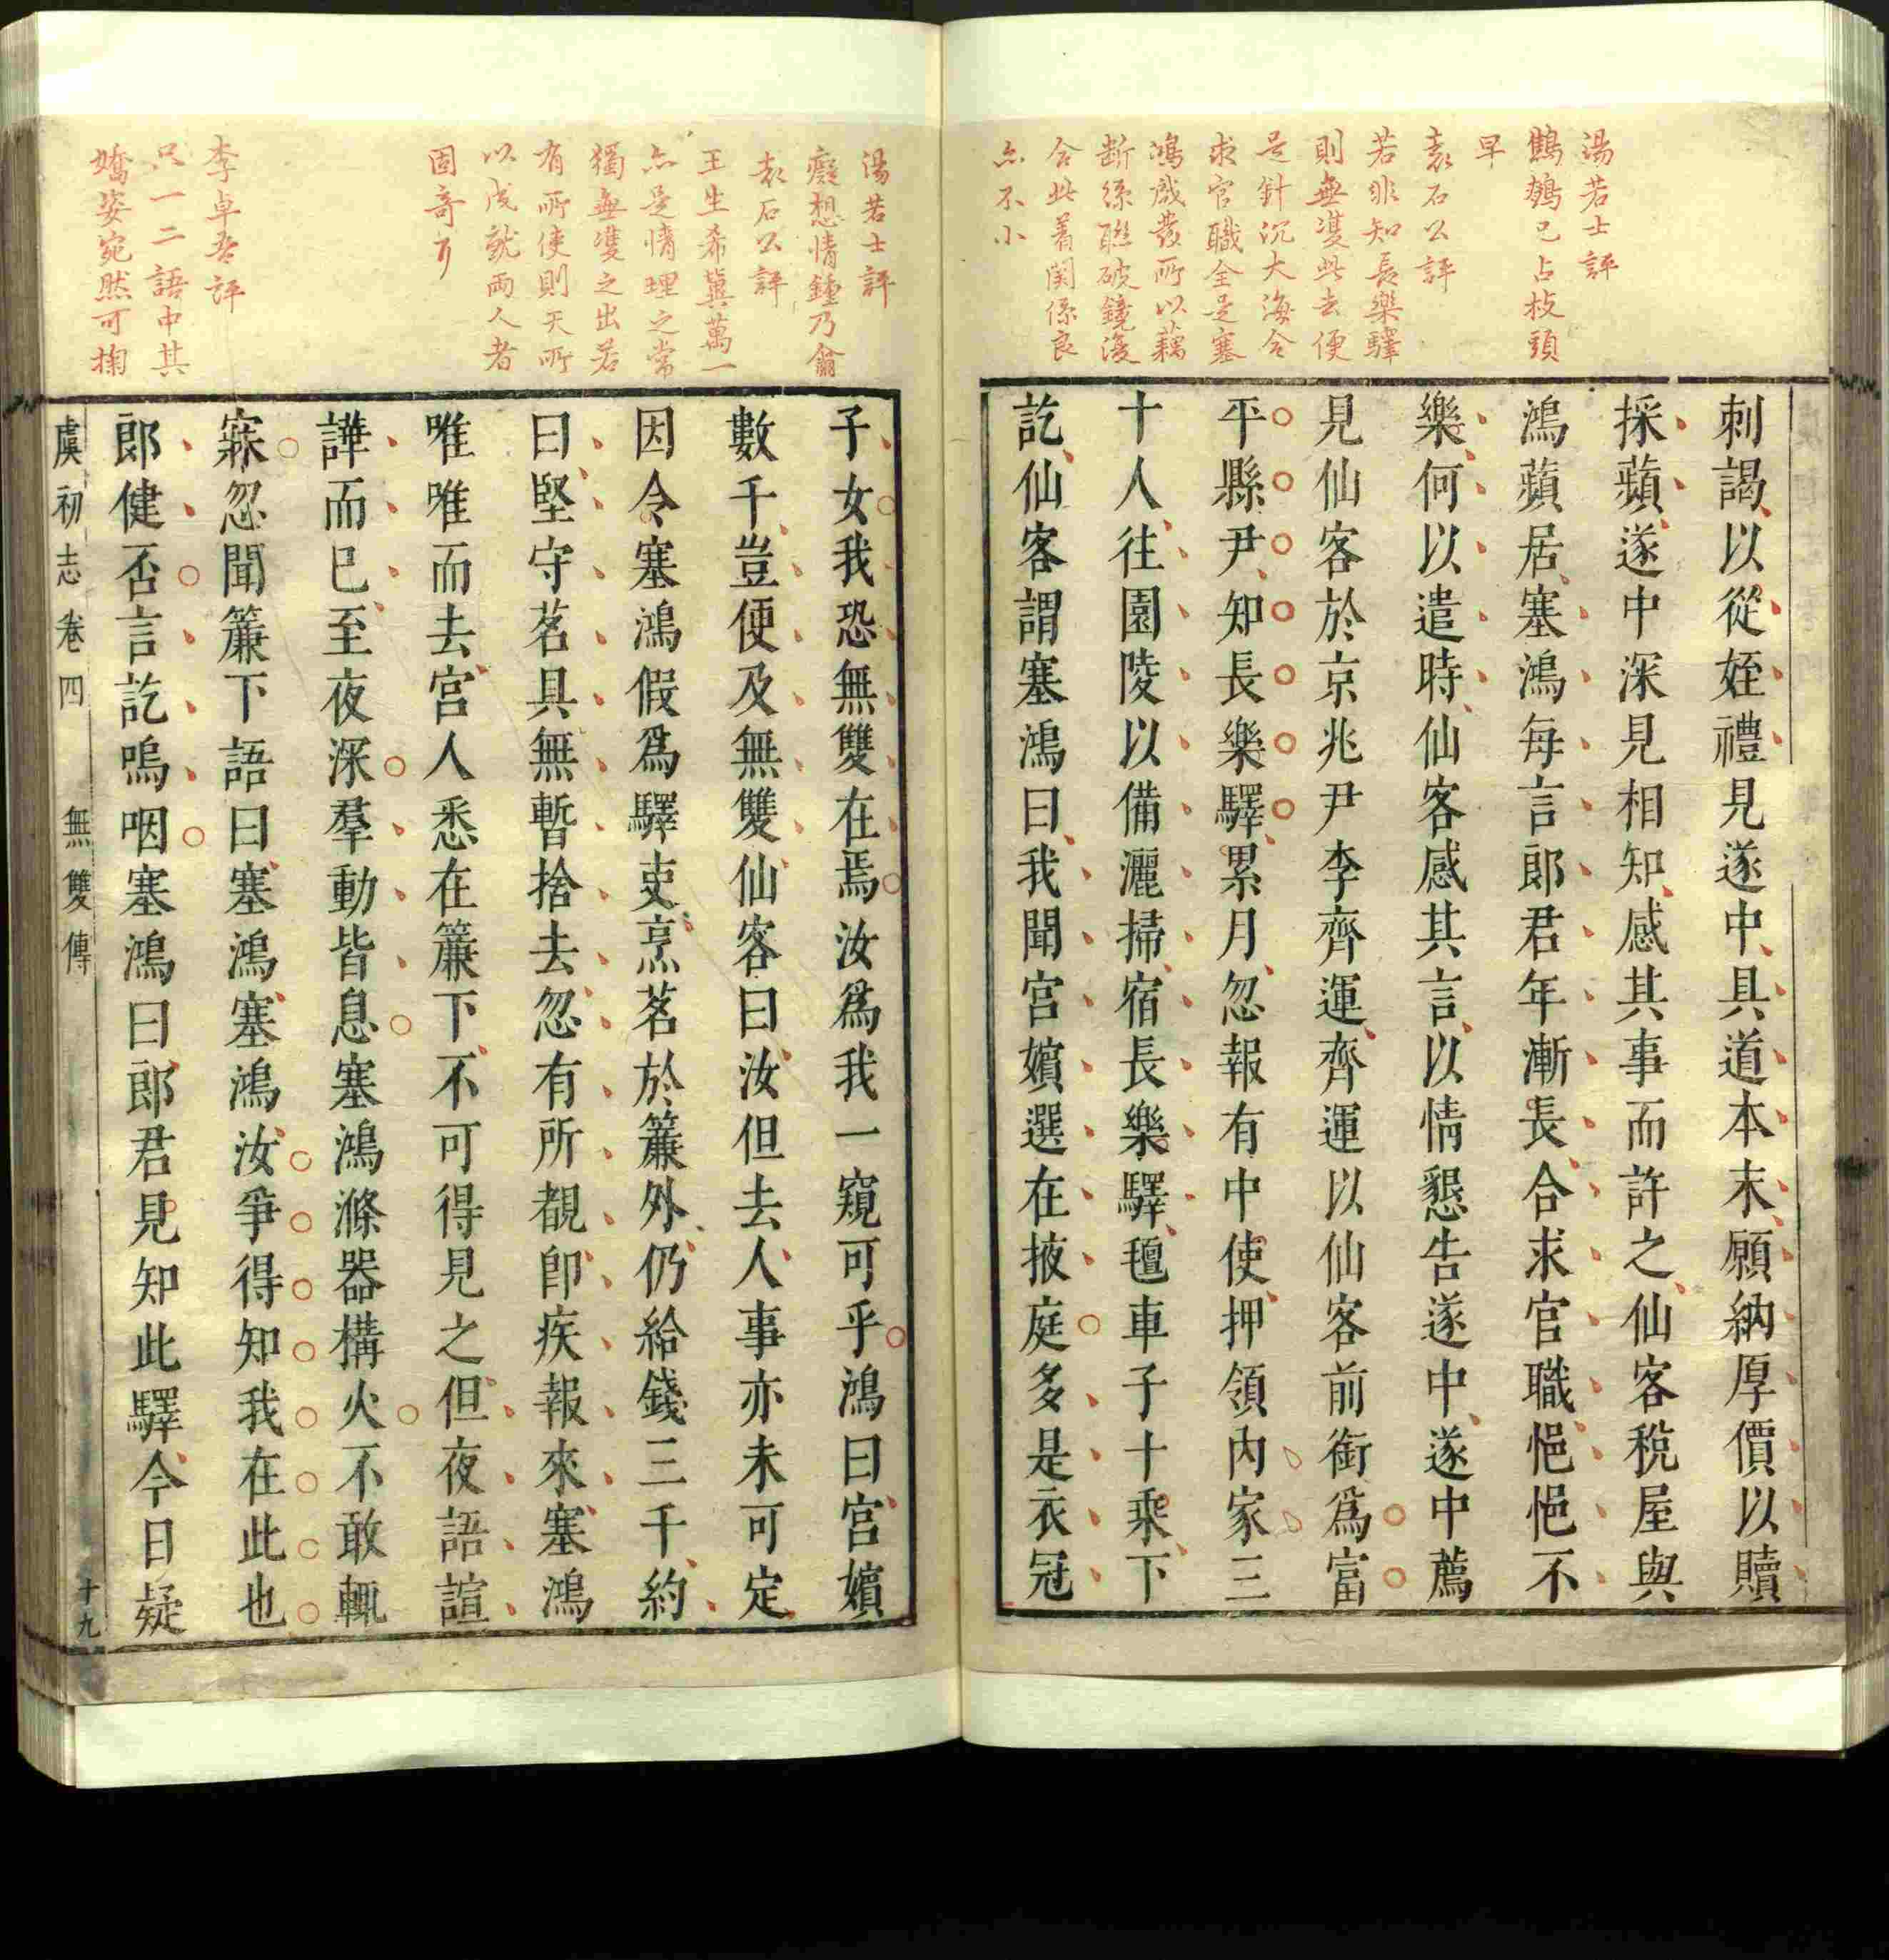 湯若士評
鷦鷯已占枝頭
早
袁石公評
若非知長樂驛
則無雙此去便
是針沉大海合
求官職全是塞
鴻感發所以藕
斷絲聯破鏡復
合此着関係良
亦不小
刺謁以從姪禮見遂中具道本末願納厚價以贖
採蘋遂中深見相知感其事而許之仙客稅屋與
鴻蘋居塞鴻每言郎君年漸長合求官職悒悒不
樂何以遣時仙客感其言以情懇告遂中遂中薦
見仙客於京兆尹李齊運齊運以仙客前銜爲富
平縣尹知長樂驛累月忽報有中使押領內家三
十人往園陵以備灑掃宿長樂驛氊車子十乘下
訖仙客謂塞鴻曰我聞宮嬪選在掖庭多是衣冠
湯若士評
癡想情鍾乃爾
袁石公評
王生希冀萬一
亦是情理之常
獨無雙之出若
有所使則天所
以成就兩人者
固奇耳
李卓吾評
只一二語中其
嬌姿宛然可掬
子女我恐無雙在焉汝爲我一窺可乎鴻曰宮嬪
數千豈便及無雙仙客曰汝但去人事亦未可定
因令塞鴻假爲驛吏烹茗於簾外仍給錢三千約
曰堅守茗具無暫捨去忽有所覩卽疾報來塞鴻
唯唯而去宮人悉在簾下不可得見之但夜語諠
譁而已至夜深羣動皆息塞鴻滌器構火不敢輒
寐忽聞簾下語曰塞鴻塞鴻汝爭得知我在此也
郎健否言訖嗚咽塞鴻曰郎君見知此驛今日疑
虞初志卷四 無雙傳 十九